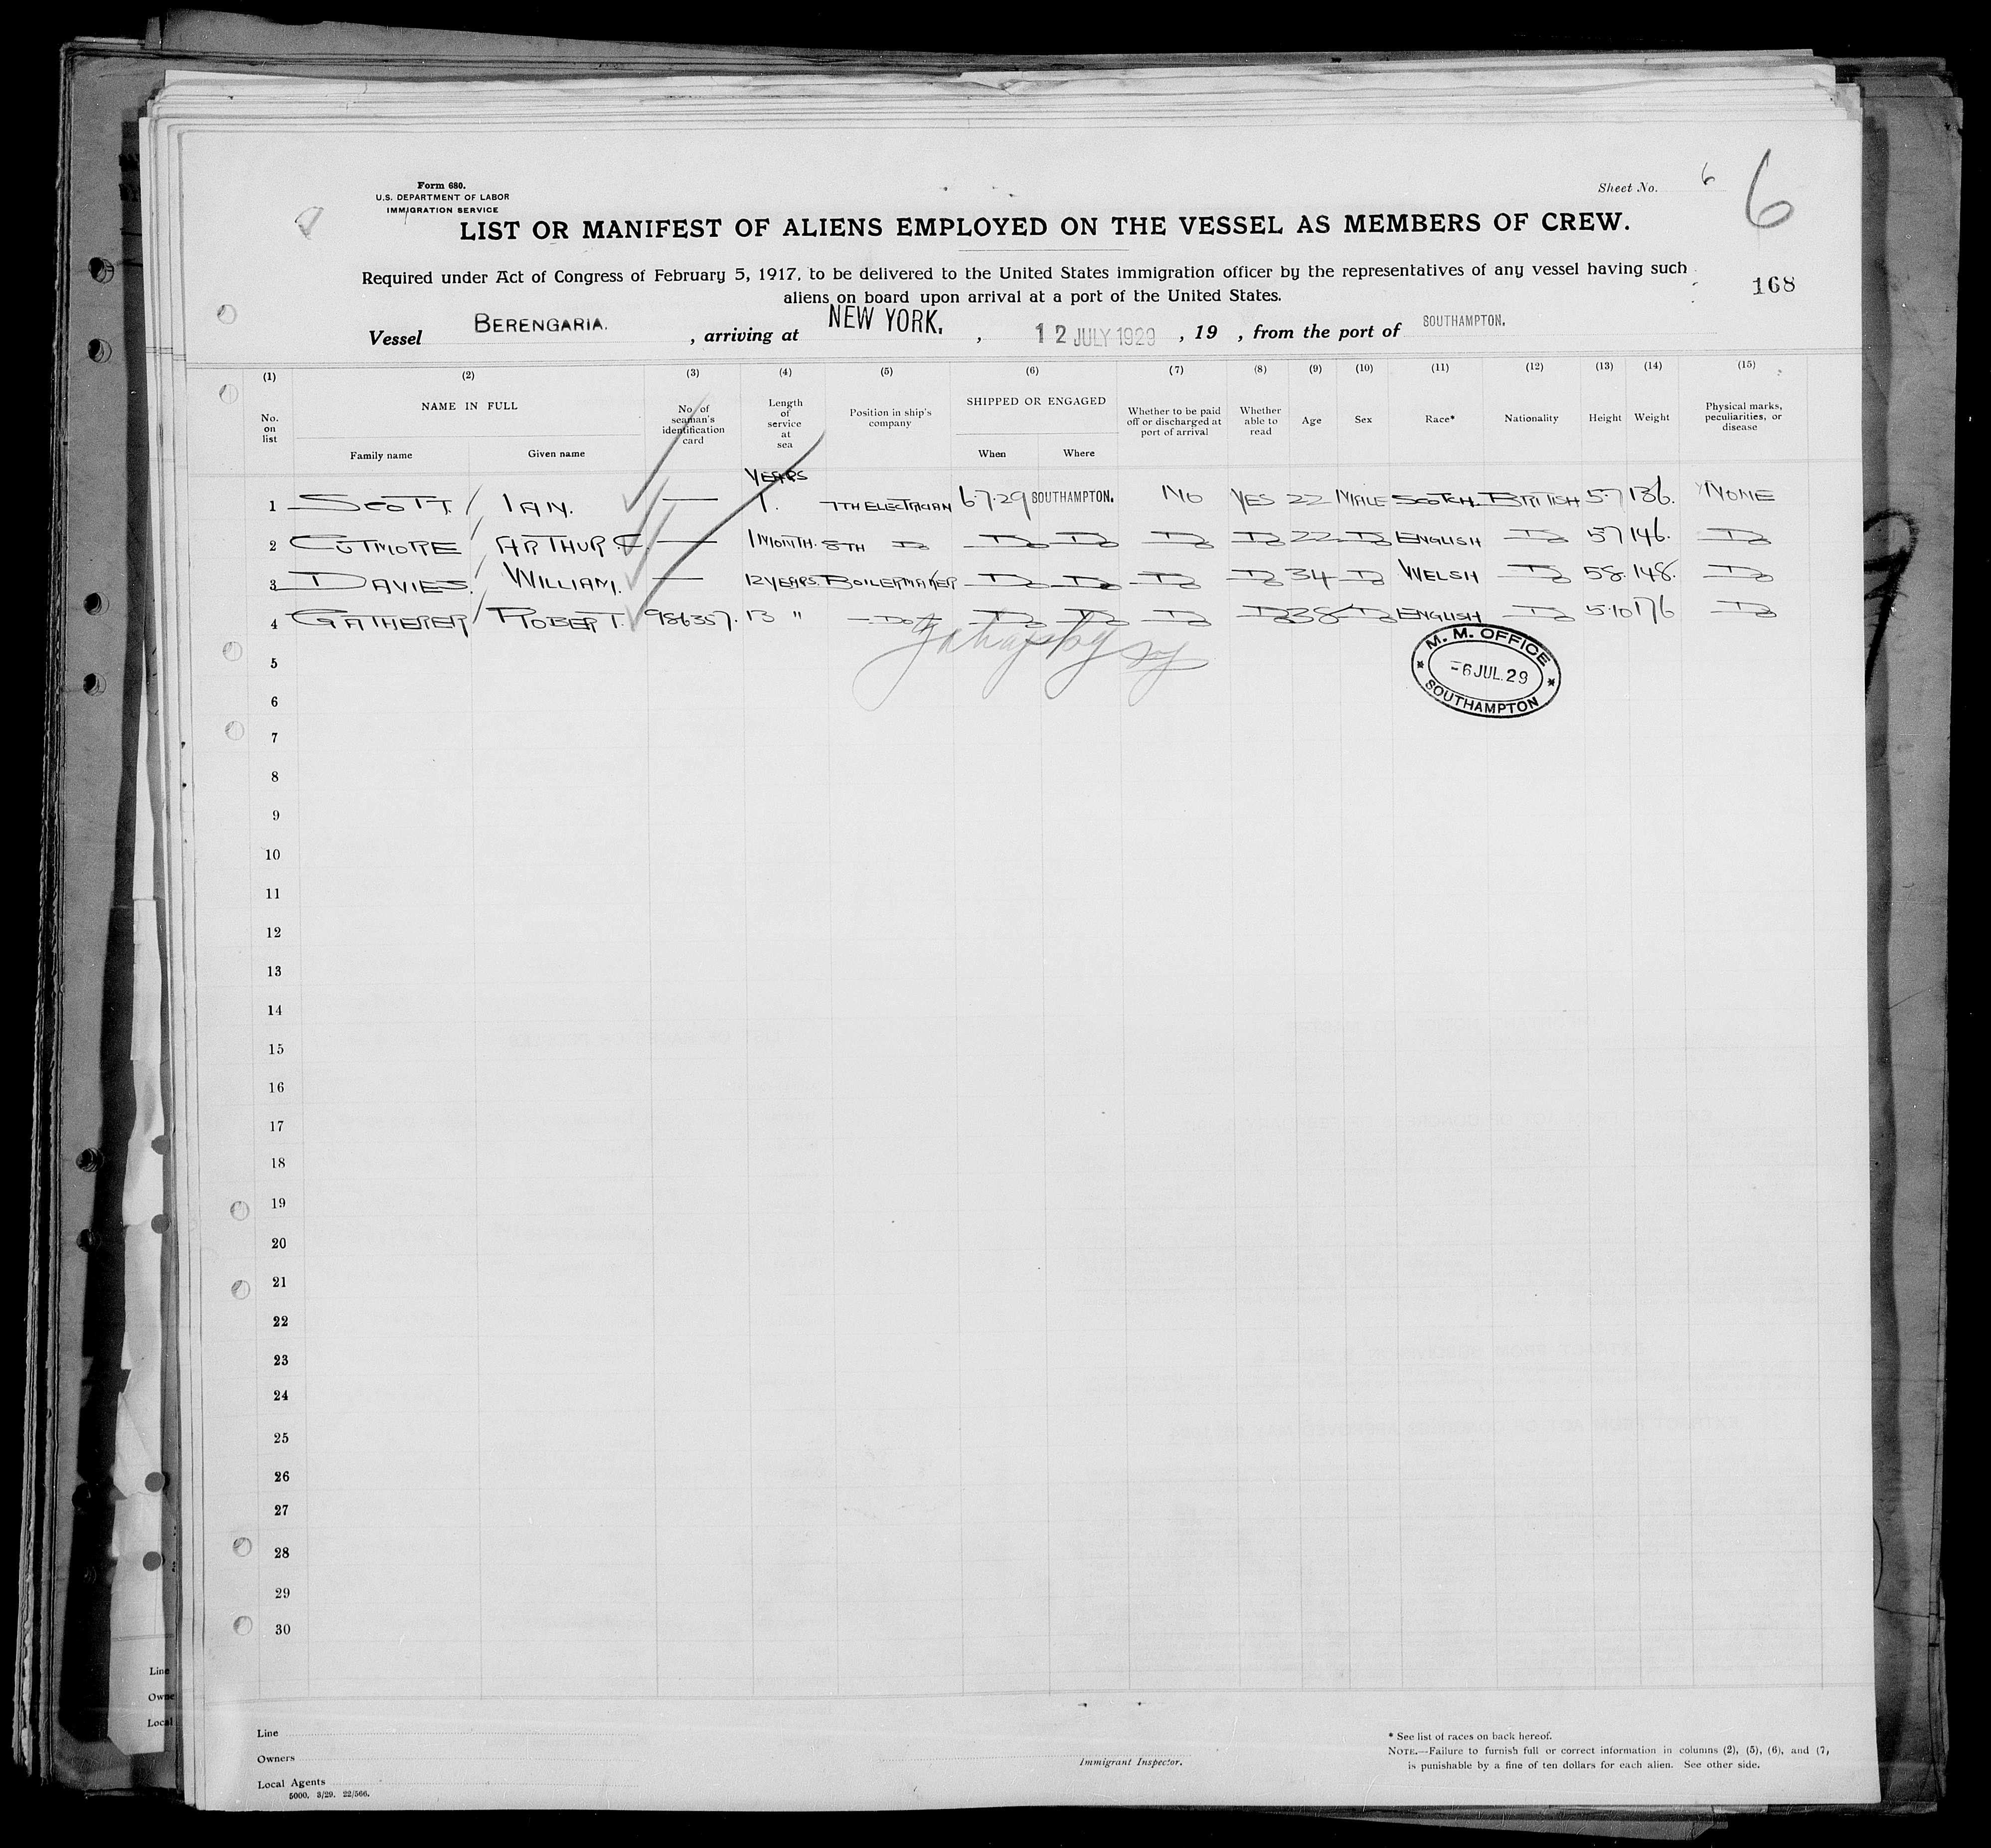 Form 680.
U.S. DEPARTMENT OF LABOR
IMMIGRATION SERVICE
Sheet No. 6
6
LIST OR MANIFEST OF ALIENS EMPLOYED ON THE VESSEL AS MEMBERS OF CREW.
Required under Act of Congress of February 5, 1917, to be delivered to the United States immigration officer by the representatives of any vessel having such
aliens on board upon arrival at a port of the United States.
168
Vessel BERENGARIA. , arriving at NEW YORK. , 12 JULY 1929 , 19 , from the port of SOUTHAMPTON.
(1) (2) (3) (4) (5) (6) (7) (8) (9) (10) (11) (12) (13) (14) (15)
No. on list NAME IN FULL Family name Given name No. of seaman's identification card Length of service at sea Position in ship's company SHIPPED OR ENGAGED When Where Whether to be paid off or discharged at port of arrival Whether able to read Age Sex Race* Nationality Height Weight Physical marks, peculiarities, or disease
YEARS
1 SCOTT. IAN. — 1. 7TH ELECTRICIAN 6.7.29 SOUTHAMPTON. NO YES 22 MALE SCOTCH. BRITISH 5.7 136. NONE
2 CUTMORE ARTHUR. — 1 MONTH. 8TH DO DO DO DO DO 22 DO ENGLISH DO 57 146. DO
3 DAVIES. WILLIAM. — 12 YEARS. BOILERMAKER DO DO DO DO 34 DO WELSH DO 58. 148. DO
4 GATHERER ROBERT. 986357. 13 " DO DO DO DO DO 38 DO ENGLISH DO 5.10 176 DO
M. M. OFFICE
-6 JUL. 29
SOUTHAMPTON
5
6
7
8
9
10
11
12
13
14
15
16
17
18
19
20
21
22
23
24
25
26
27
28
29
30
Line
Owners
Local Agents
5000. 3/29. 22/566.
Immigrant Inspector.
* See list of races on back hereof.
NOTE.—Failure to furnish full or correct information in columns (2), (5), (6), and (7,
is punishable by a fine of ten dollars for each alien. See other side.
Line
Owne
Local